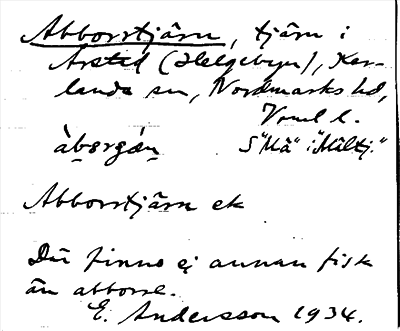 Abborrtjärn, tjärn i
Årstad (Helgebyn), Kar-
landa sn, Nordmarks hd,
Vrml l.
àbərgǽn̥ S "Må" i "Måltj."
Abborrtjärn ek
Där finns ej annan fisk
än abborre.
E. Andersson 1934.